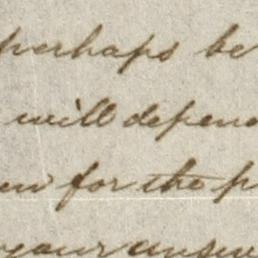 perhaps be
will depend
for the
your answer